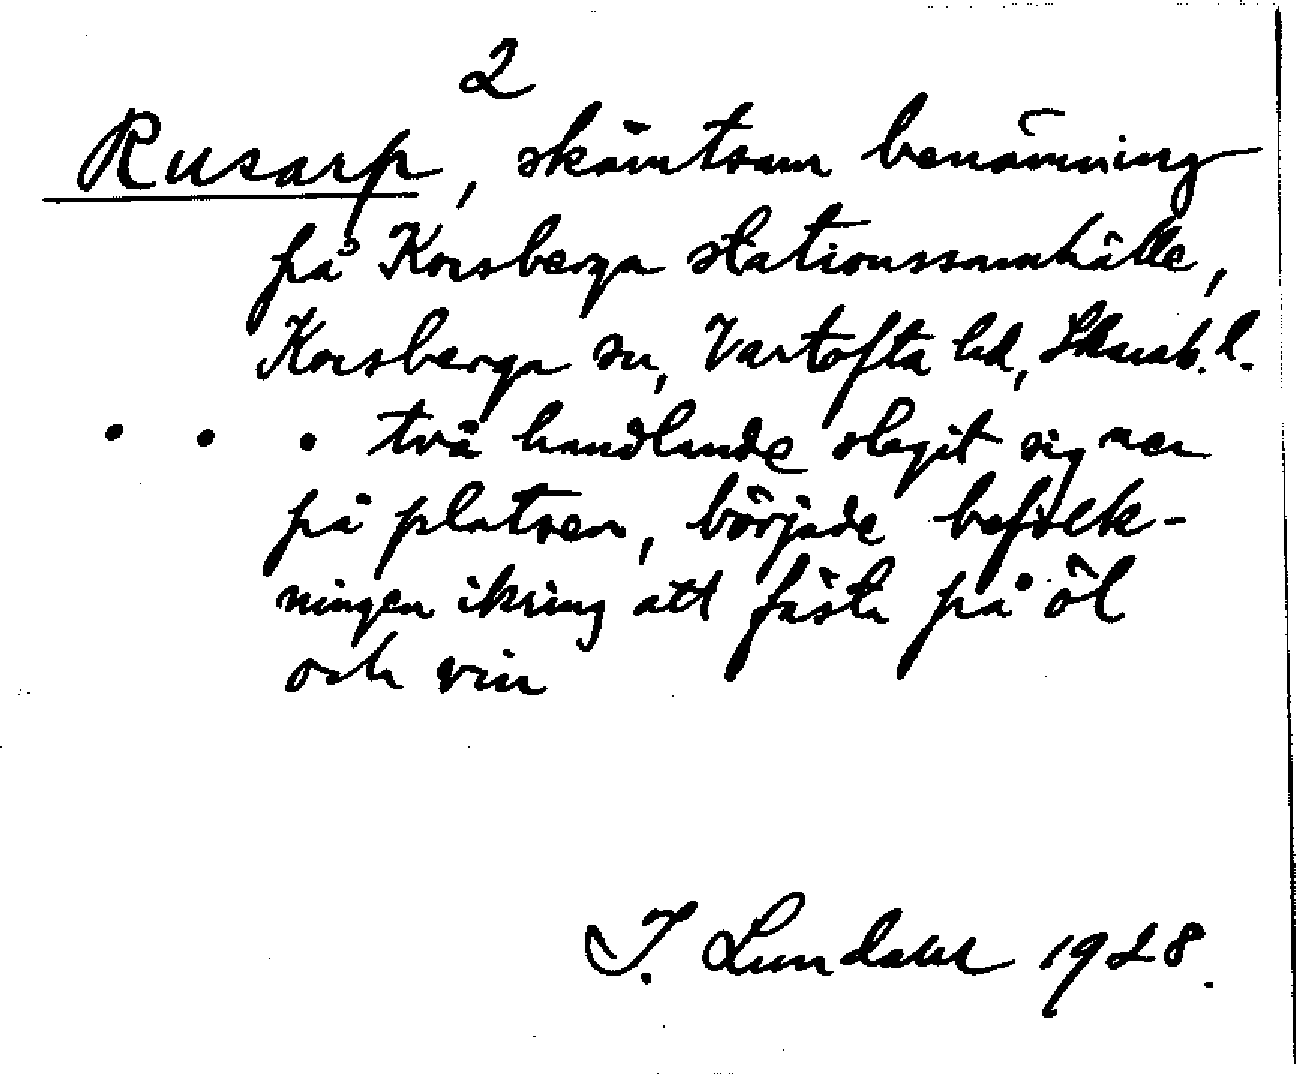 2
Rusarp, skämtsam benämning
på Korsberga stationssamhälle,
Korsberga sn, Vartofta hd, Skarab. l.
. . . två handlande slagit sig ner
på platsen, började befolk-
ningen ikring att fästa på öl
och vin
I. Lundahl 1928.